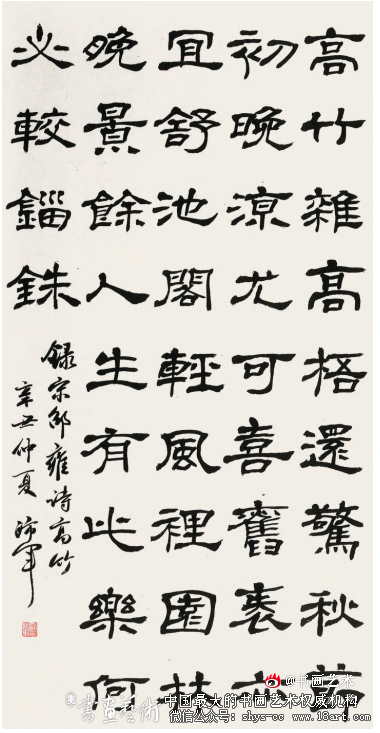 高竹雜高梧還驚秋節
初晚涼尤可喜舊袠亦
宜舒池閣輕風裡園林
晚景餘人生有此樂何
必較錙銖
録宋邵雍诗高竹
辛丑仲夏
@书画艺术
書畫藝術
中国最大的书画艺术权威机构
微信公众号：shys-cc www.18art.com